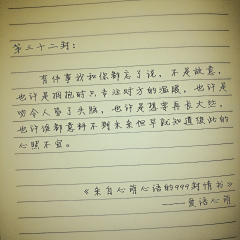 第三十二封：
有件事我和你都忘了说，不是故意，
也许是拥抱时只专注对方的温暖，也许是
吻令人晕了头脑，也许是想要再长大些，
也许谁都意料不到未来但早就知道彼此的
心照不宣。
《来自心萌心语的999封情书》
——爱语心萌